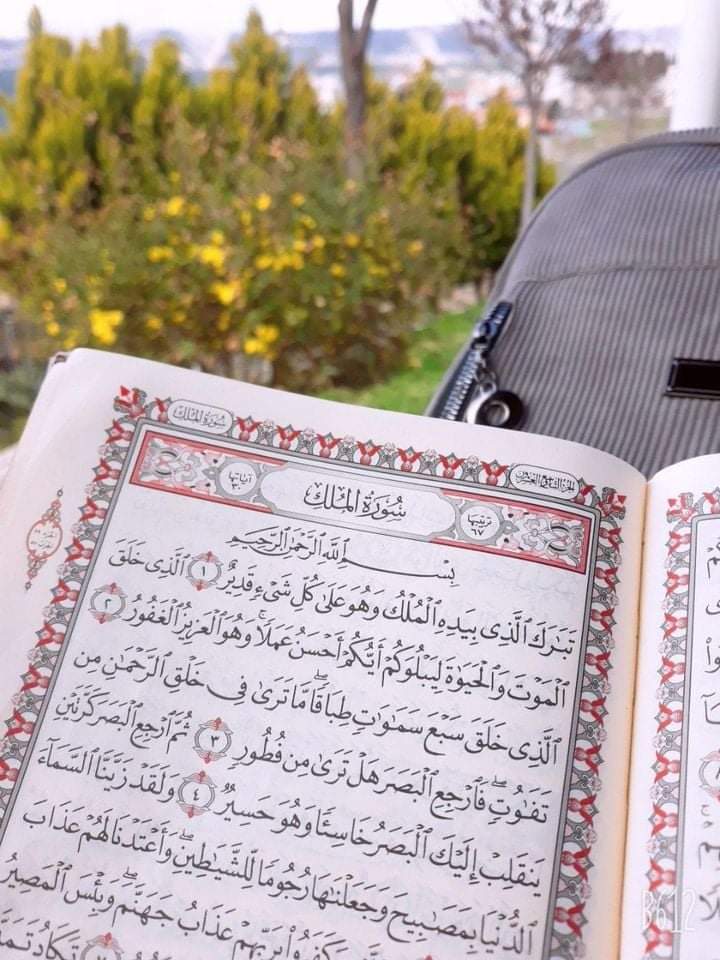 سُورَةُ المُلْكِ
الجزء التاسع والعشرون
آيَاتُهَا ٣٠
سُورَةُ المُلْكِ
تَرْتِيبُهَا ٦٧
بِسْمِ ٱللَّهِ ٱلرَّحْمَٰنِ ٱلرَّحِيمِ
تَبَٰرَكَ ٱلَّذِى بِيَدِهِ ٱلْمُلْكُ وَهُوَ عَلَىٰ كُلِّ شَىْءٍ قَدِيرٌ ١ ٱلَّذِى خَلَقَ
ٱلْمَوْتَ وَٱلْحَيَوٰةَ لِيَبْلُوَكُمْ أَيُّكُمْ أَحْسَنُ عَمَلًا ۚ وَهُوَ ٱلْعَزِيزُ ٱلْغَفُورُ ٢
ٱلَّذِى خَلَقَ سَبْعَ سَمَٰوَٰتٍ طِبَاقًا ۖ مَّا تَرَىٰ فِى خَلْقِ ٱلرَّحْمَٰنِ مِن
تَفَٰوُتٍ ۖ فَٱرْجِعِ ٱلْبَصَرَ هَلْ تَرَىٰ مِن فُطُورٍ ٣ ثُمَّ ٱرْجِعِ ٱلْبَصَرَ كَرَّتَيْنِ
يَنقَلِبْ إِلَيْكَ ٱلْبَصَرُ خَاسِئًا وَهُوَ حَسِيرٌ ٤ وَلَقَدْ زَيَّنَّا ٱلسَّمَآءَ
ٱلدُّنْيَا بِمَصَٰبِيحَ وَجَعَلْنَٰهَا رُجُومًا لِّلشَّيَٰطِينِ ۖ وَأَعْتَدْنَا لَهُمْ عَذَابَ
كَفَرُوا۟ بِرَبِّهِمْ عَذَابُ جَهَنَّمَ ۖ وَبِئْسَ ٱلْمَصِيرُ
تَكَادُ تَمَيَّزُ
B612